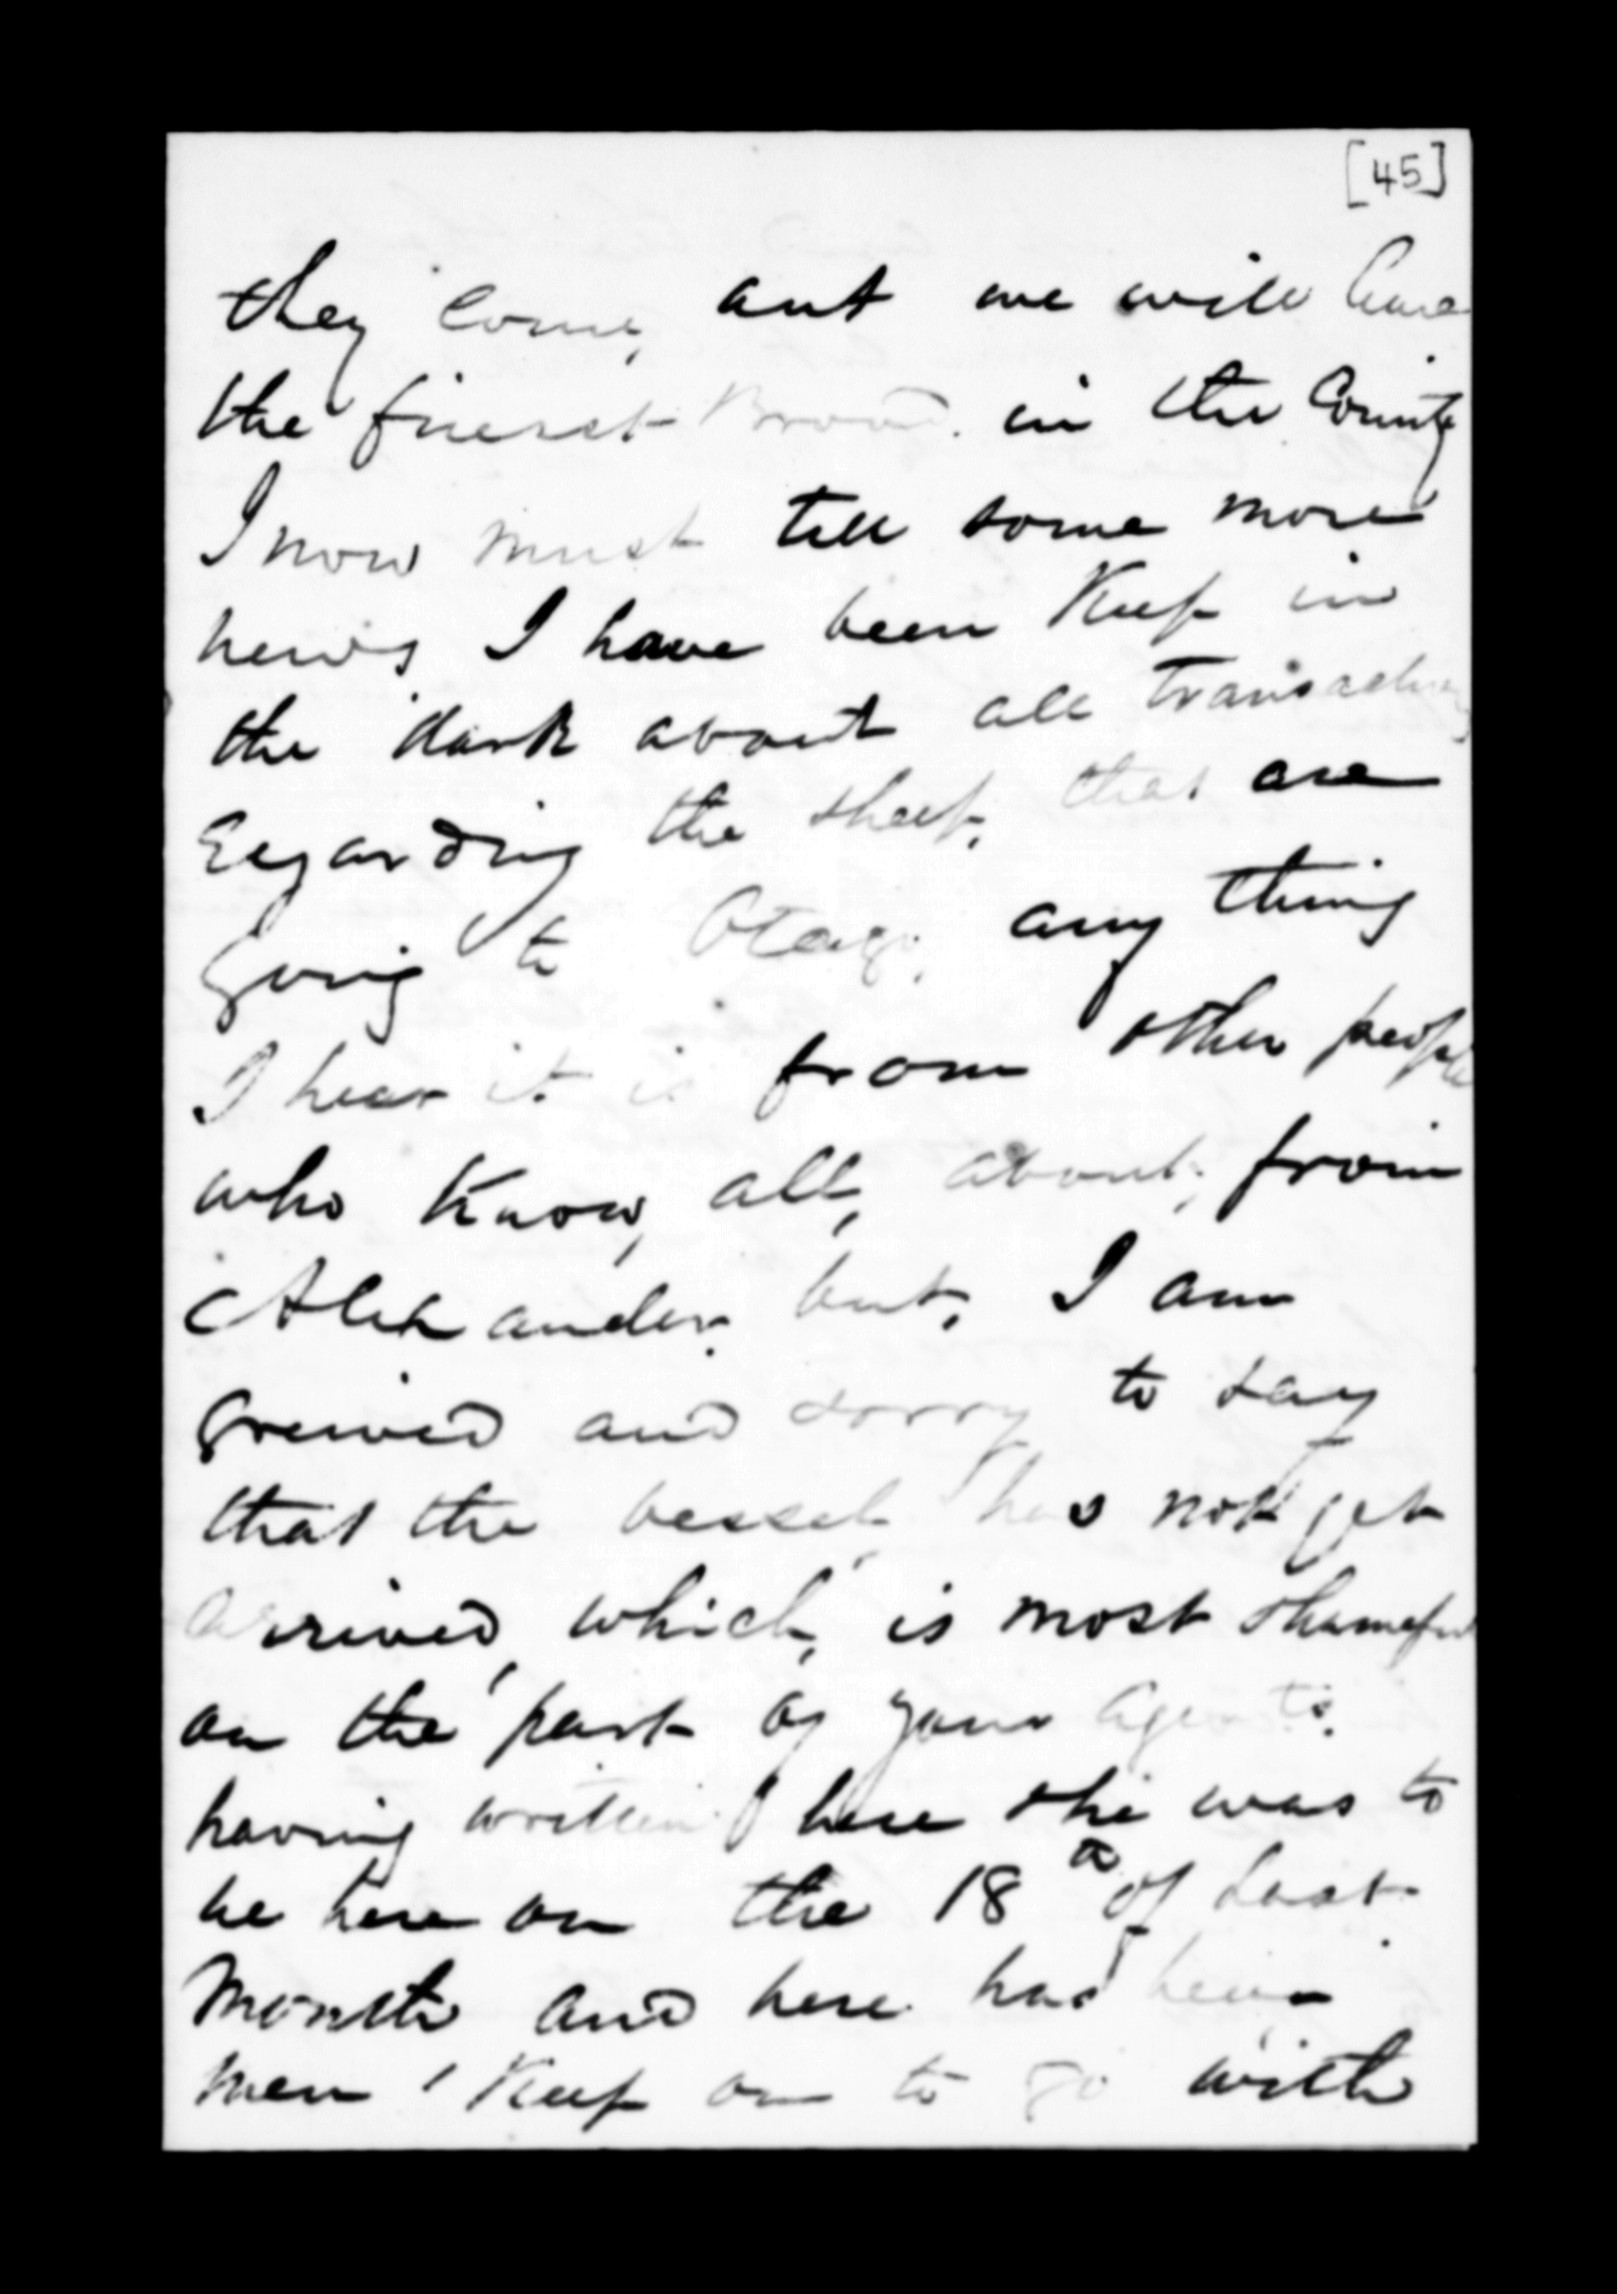 [45]
they come, aut we will have
the finerst Brood. in the County
I now must tell some more
news I have been Keep in
the dark about all transactions
Regarding the sheep, that are
going to Otago, any thing
I hear it is from other people
who Know, all, about, from
Alexander, but, I am
greived and sorry to say
that the vessel, has not yet
arrived, which, is most shameful
on the part of your Agents,
having written here she was to
be here on the 18th of Last
Month and here had been
men Keep on to go with